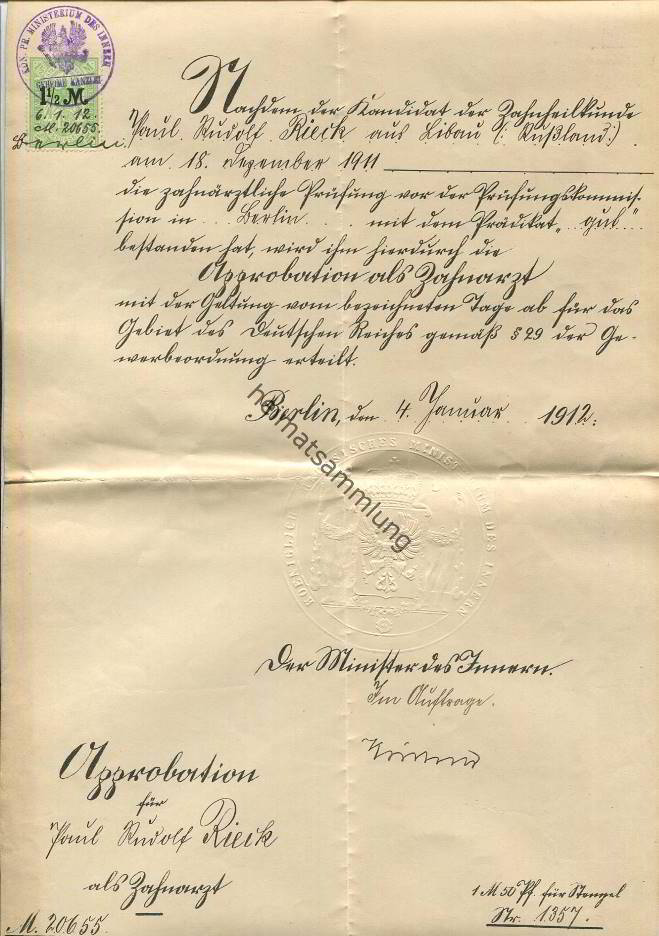 KÖN. PR. MINISTERIUM DES INNERN
GEHEIME KANZLEI
1½ M.
6. 1. 12
M. 20655.
Berlin.
Nachdem der Kandidat der Zahnheilkunde
Paul Rudolf Rieck aus Libau (: Rußland :)
am 18. Dezember 1911
die zahnärztliche Prüfung vor der Prüfungskommis-
sion in Berlin mit dem Prädikat „gut“
bestanden hat, wird ihm hierdurch die
Approbation als Zahnarzt
mit der Geltung vom bezeichneten Tage ab für das
Gebiet des Deutschen Reiches gemäß § 29 der Ge-
werbeordnung erteilt.
Berlin, den 4. Januar 1912.
heimatsammlung
KOENIGLICH PREUSSISCHES MINISTERIUM DES INNERN
Der Minister des Innern.
Im Auftrage.
Approbation
für
Paul Rudolf Rieck
als Zahnarzt
M. 20655.
1 M 50 Pf. für Stempel
Nr. 1357.